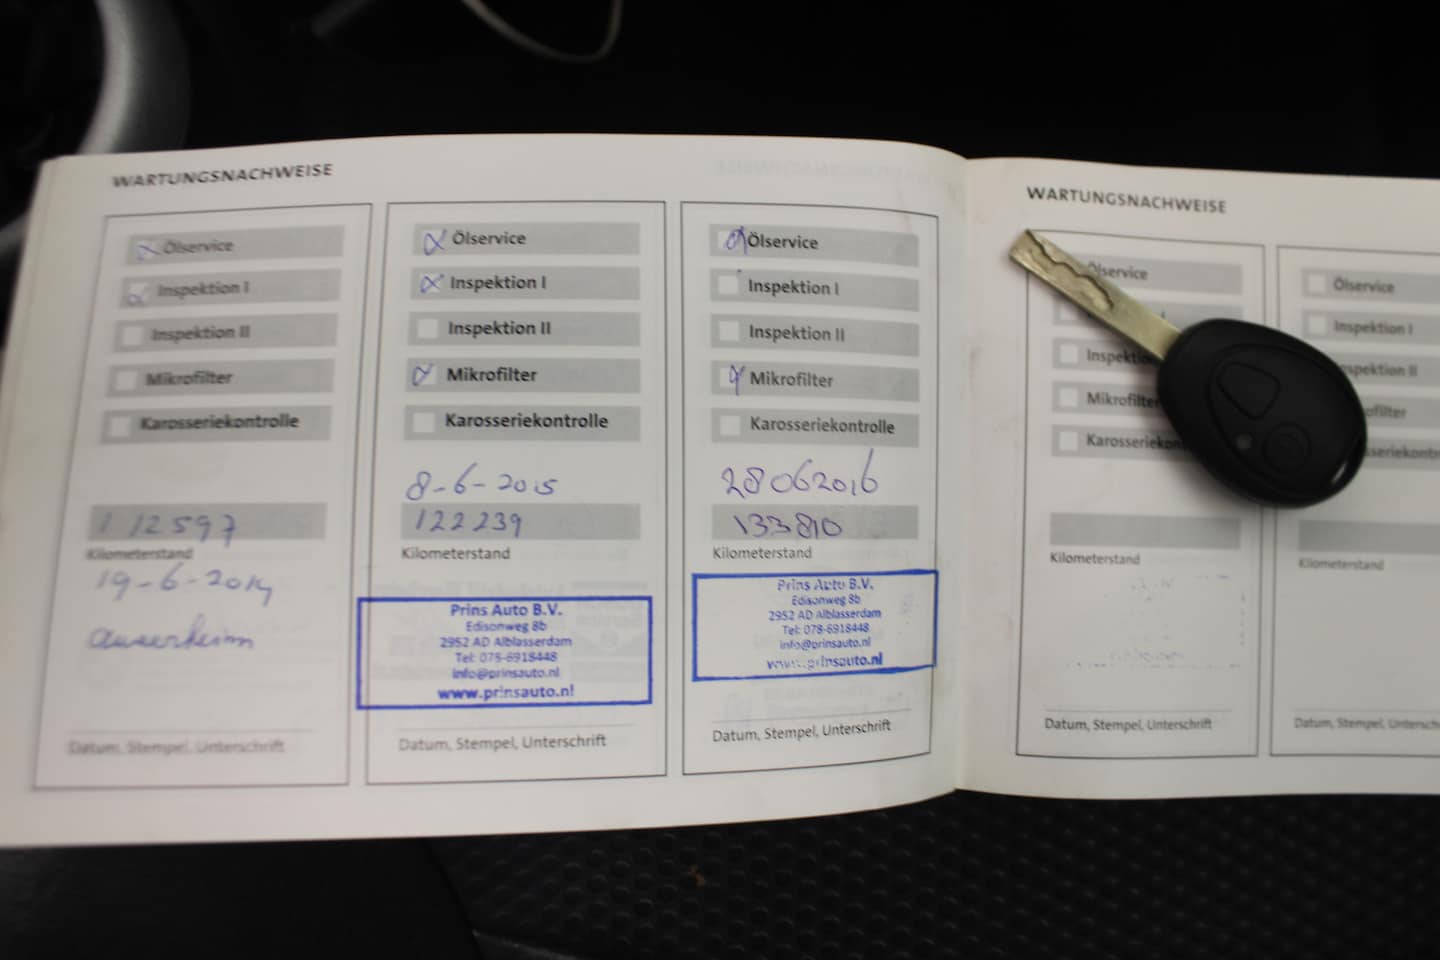 WARTUNGSNACHWEISE
Ölservice
Inspektion I
Inspektion II
Mikrofilter
Karosseriekontrolle
112597
Kilometerstand
19-6-2014
Datum, Stempel, Unterschrift
Ölservice
Inspektion I
Inspektion II
Mikrofilter
Karosseriekontrolle
8-6-2015
122239
Kilometerstand
Prins Auto B.V.
Edisonweg 8b
2952 AD Alblasserdam
Tel: 078-6918448
info@prinsauto.nl
www.prinsauto.nl
Datum, Stempel, Unterschrift
Ölservice
Inspektion I
Inspektion II
Mikrofilter
Karosseriekontrolle
28062016
133810
Kilometerstand
Prins Auto B.V.
Edisonweg 8b
2952 AD Alblasserdam
Tel: 078-6918448
info@prinsauto.nl
www.prinsauto.nl
Datum, Stempel, Unterschrift
WARTUNGSNACHWEISE
Ölservice
I
Inspektio
Mikrofilter
Karosseriekon
Kilometerstand
Datum, Stempel, Unterschrift
Ölservice
Inspektion I
nspektion II
ofilter
sseriekontr
Kilometerstand
Datum, Stempel, Untersch